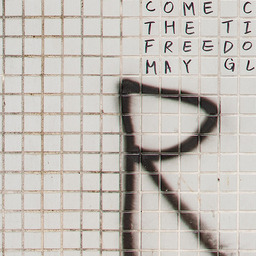 COME C
THE TI
FREEDO
MAY GL
R